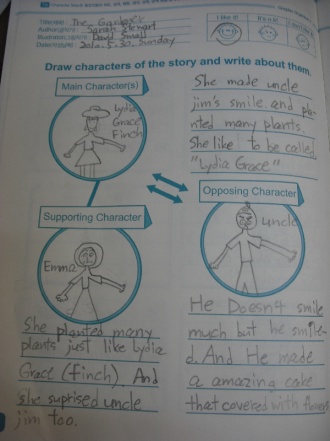 Title(제목) The Gardener
Author(작가) Sarah Stewart
Illustrator(삽화가) David Small
Date(날짜) 2010. 5. 30. Sunday
I like it!
It's o.k.
Draw characters of the story and write about them.
Main Character(s)
Lydia
Grace
Finch
She made uncle
jim's smile and pla-
nted many plants.
She like to be called
"Lydia Grace"
Supporting Character
Emma
She planted many
plants just like Lydia
Grace (finch). And
she suprised uncle
jim too.
Opposing Character
uncle
He Doesn't smile
much but he smile-
d. And He made
a amazing cake
that covered with flowers